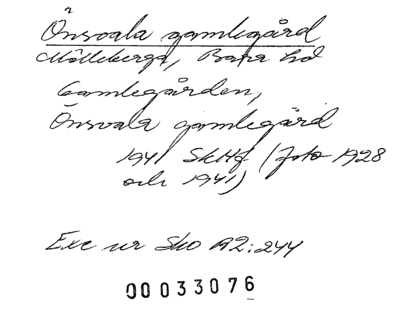 Önsvala gamlegård
Mölleberga, Bara hd
Gamlegården,
Önsvala gamlegård
1941 SkHf (foto 1928
och 1941)
Exc ur Sko A2:244
00033076